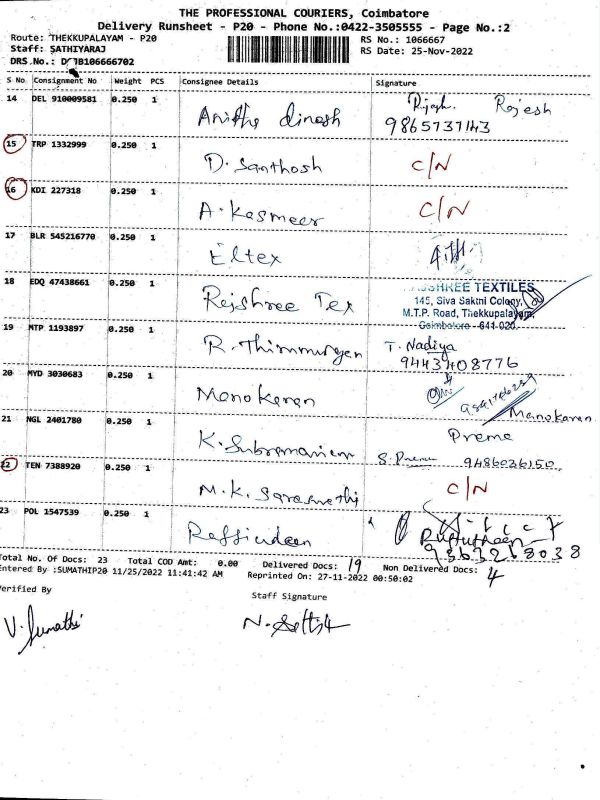 THE PROFESSIONAL COURIERS, Coimbatore
Delivery Runsheet - P20 - Phone No.:0422-3505555 - Page No.:2
Route: THEKKUPALAYAM - P20
RS No.: 1066667
Staff: SATHIYARAJ
RS Date: 25-Nov-2022
DRS.No.: 106666702
S No Consignment No Weight PCS Consignee Details Signature
14 DEL 910009581 0.250 1 Anitha dinesh Rajesh
9865737143
15 TRP 1332999 0.250 1 D. Santhosh C/N
16 KDI 227318 0.250 1 A. Kasmeer C/N
17 BLR 545216770 0.250 1 Eltex
18 EDQ 47438661 0.250 1 Rajshree Tex
SHREE TEXTILES
145, Siva Sakthi Colony,
M.T.P. Road, Thekkupalayam,
Coimbatore - 641 020.
19 MTP 1193897 0.250 1 R. Thirumurgan T. Nadiya
9443408776
20 MYD 3030683 0.250 1 Manokaran
Manokaran
21 NGL 2401780 0.250 1 K. Subramaniem Preme
S. Preme 9486036150
22 TEN 7388920 0.250 1 M.K. Saraswathi C/N
23 POL 1547539 0.250 1 Raffiudeen
9863268038
Total No. Of Docs: 23 Total COD Amt: 0.00 Delivered Docs: 19 Non Delivered Docs: 4
Entered By :SUMATHIP20 11/25/2022 11:41:42 AM Reprinted On: 27-11-2022 00:50:02
Verified By
Staff Signature
V. Sumathi
N. Sathish